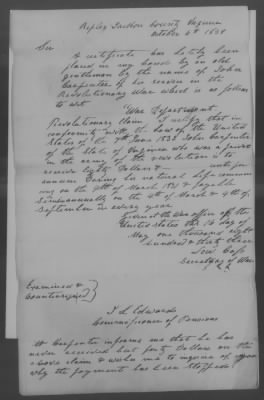 Ripley Jackson County Virginia
October 6th 1838
Sir
A certificate has lately been
placed in my hands by an old
gentleman by the name of John
Carpenter of his service in the
Revolutionary War which is as follows
to wit
War Department
Revolutionary Claim I certify that in
conformity with the law of the United
States of the 7th June 1832 John Carpenter
of the State of Virginia who was a private
in the army of the revolution is to
receive Eighty Dollars & cents per
annum during his natural life commenc
ing on the 4th of March 1831 & payable
semiannually on the 4th of March & 4th of
September in every year
Given at the War office of the
United States this 16 day of
May one thousand eight
hundred & thirty three
Lew Cass
Secretary of War
Examined &
Countersigned
J L Edwards
Commissioner of Pensions
Mr Carpenter informs me that he has
never received but forty Dollars on the
above claim & wishes me to inquire of you
why the payment has been stopped